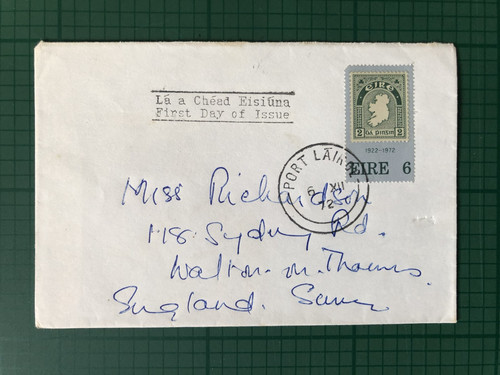 Lá a Chéad Eisiúna
First Day of Issue
EIRE
2 DÁ PINGIN 2
1922-1972
EIRE 6
PORT LÁIRGE
6 XII
72
Miss Richardson
118. Sydney Rd.
Walton.on.Thames.
England. Surrey